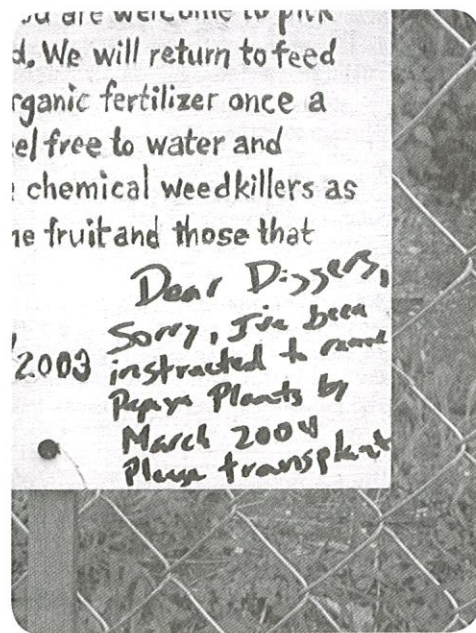 ou are welcome to pick
d. We will return to feed
rganic fertilizer once a
el free to water and
e chemical weedkillers as
he fruit and those that
Dear Diggers,
Sorry, I've been
2003
instructed to
Papaya Plants by
March 2004
Please transplant